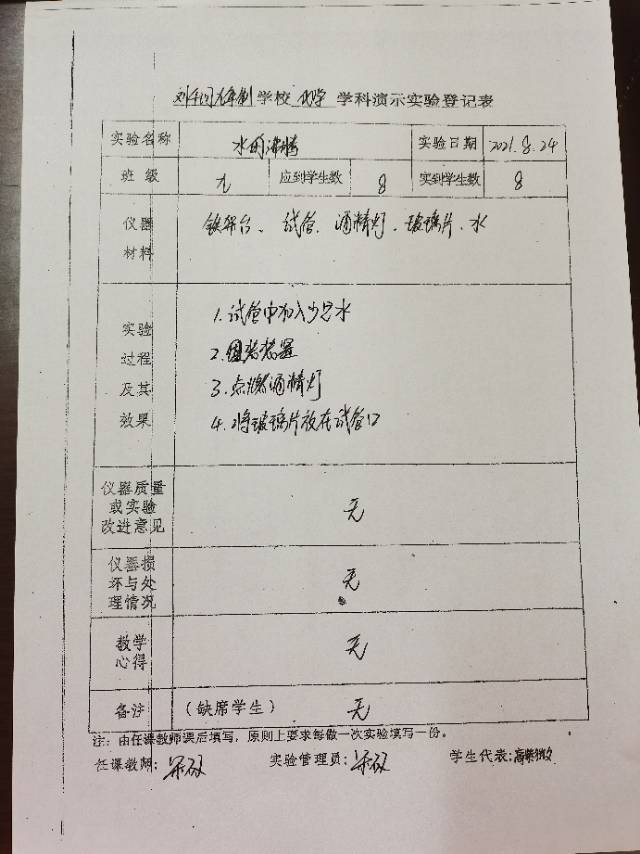 学校 化学 学科演示实验登记表
实验名称 水的沸腾 实验日期 2021.8.24
班级 九 应到学生数 8 实到学生数 8
仪器 铁架台、试管、酒精灯、玻璃片、水
材料
1.试管中加入少量水
实验
过程 2.组装装置
及其 3.点燃酒精灯
效果 4.将玻璃片放在试管口
仪器质量
或实验 无
改进意见
仪器损
坏与处 无
理情况
教学 无
心得
备注 (缺席学生) 无
注：由任课教师课后填写，原则上要求每做一次实验填写一份。
任课教师: 实验管理员: 学生代表: